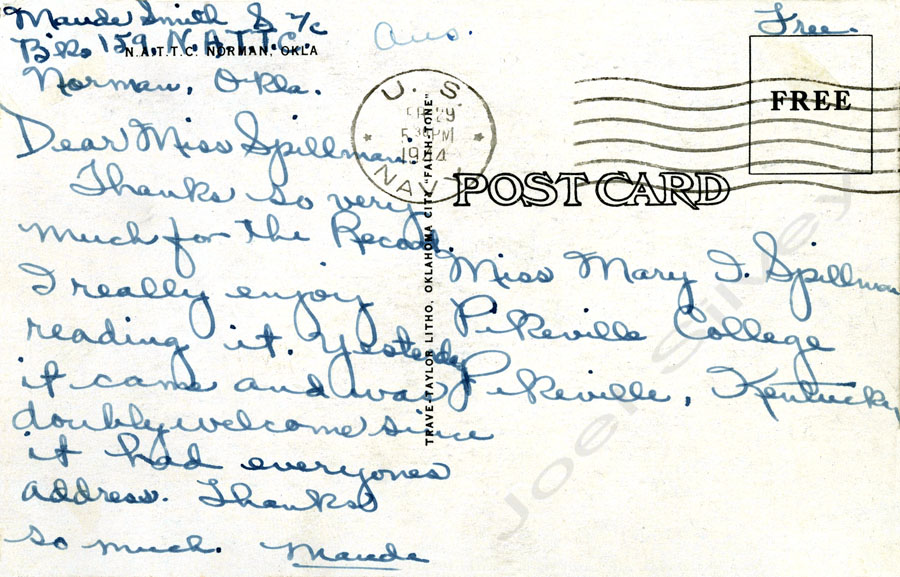 Maude Smith S 2/c
Bks. 159, N.A.T.T.C.
N.A.T.T.C. NORMAN, OKLA
Norman, Okla.
Ans.
Free.
FREE
U.S.
29
5 PM
1944
NAVY
POST CARD
Dear Miss Spillman:
Thanks so very
much for the Record.
I really enjoy
reading it. Yesterday
it came and was
doubly welcome since
it had everyones
address. Thanks
so much. Maude
TRAVE-TAYLOR LITHO. OKLAHOMA CITY "FAITH-TONE"
Miss Mary I. Spillman
Pikeville College
Pikeville, Kentucky
Joel Silvey